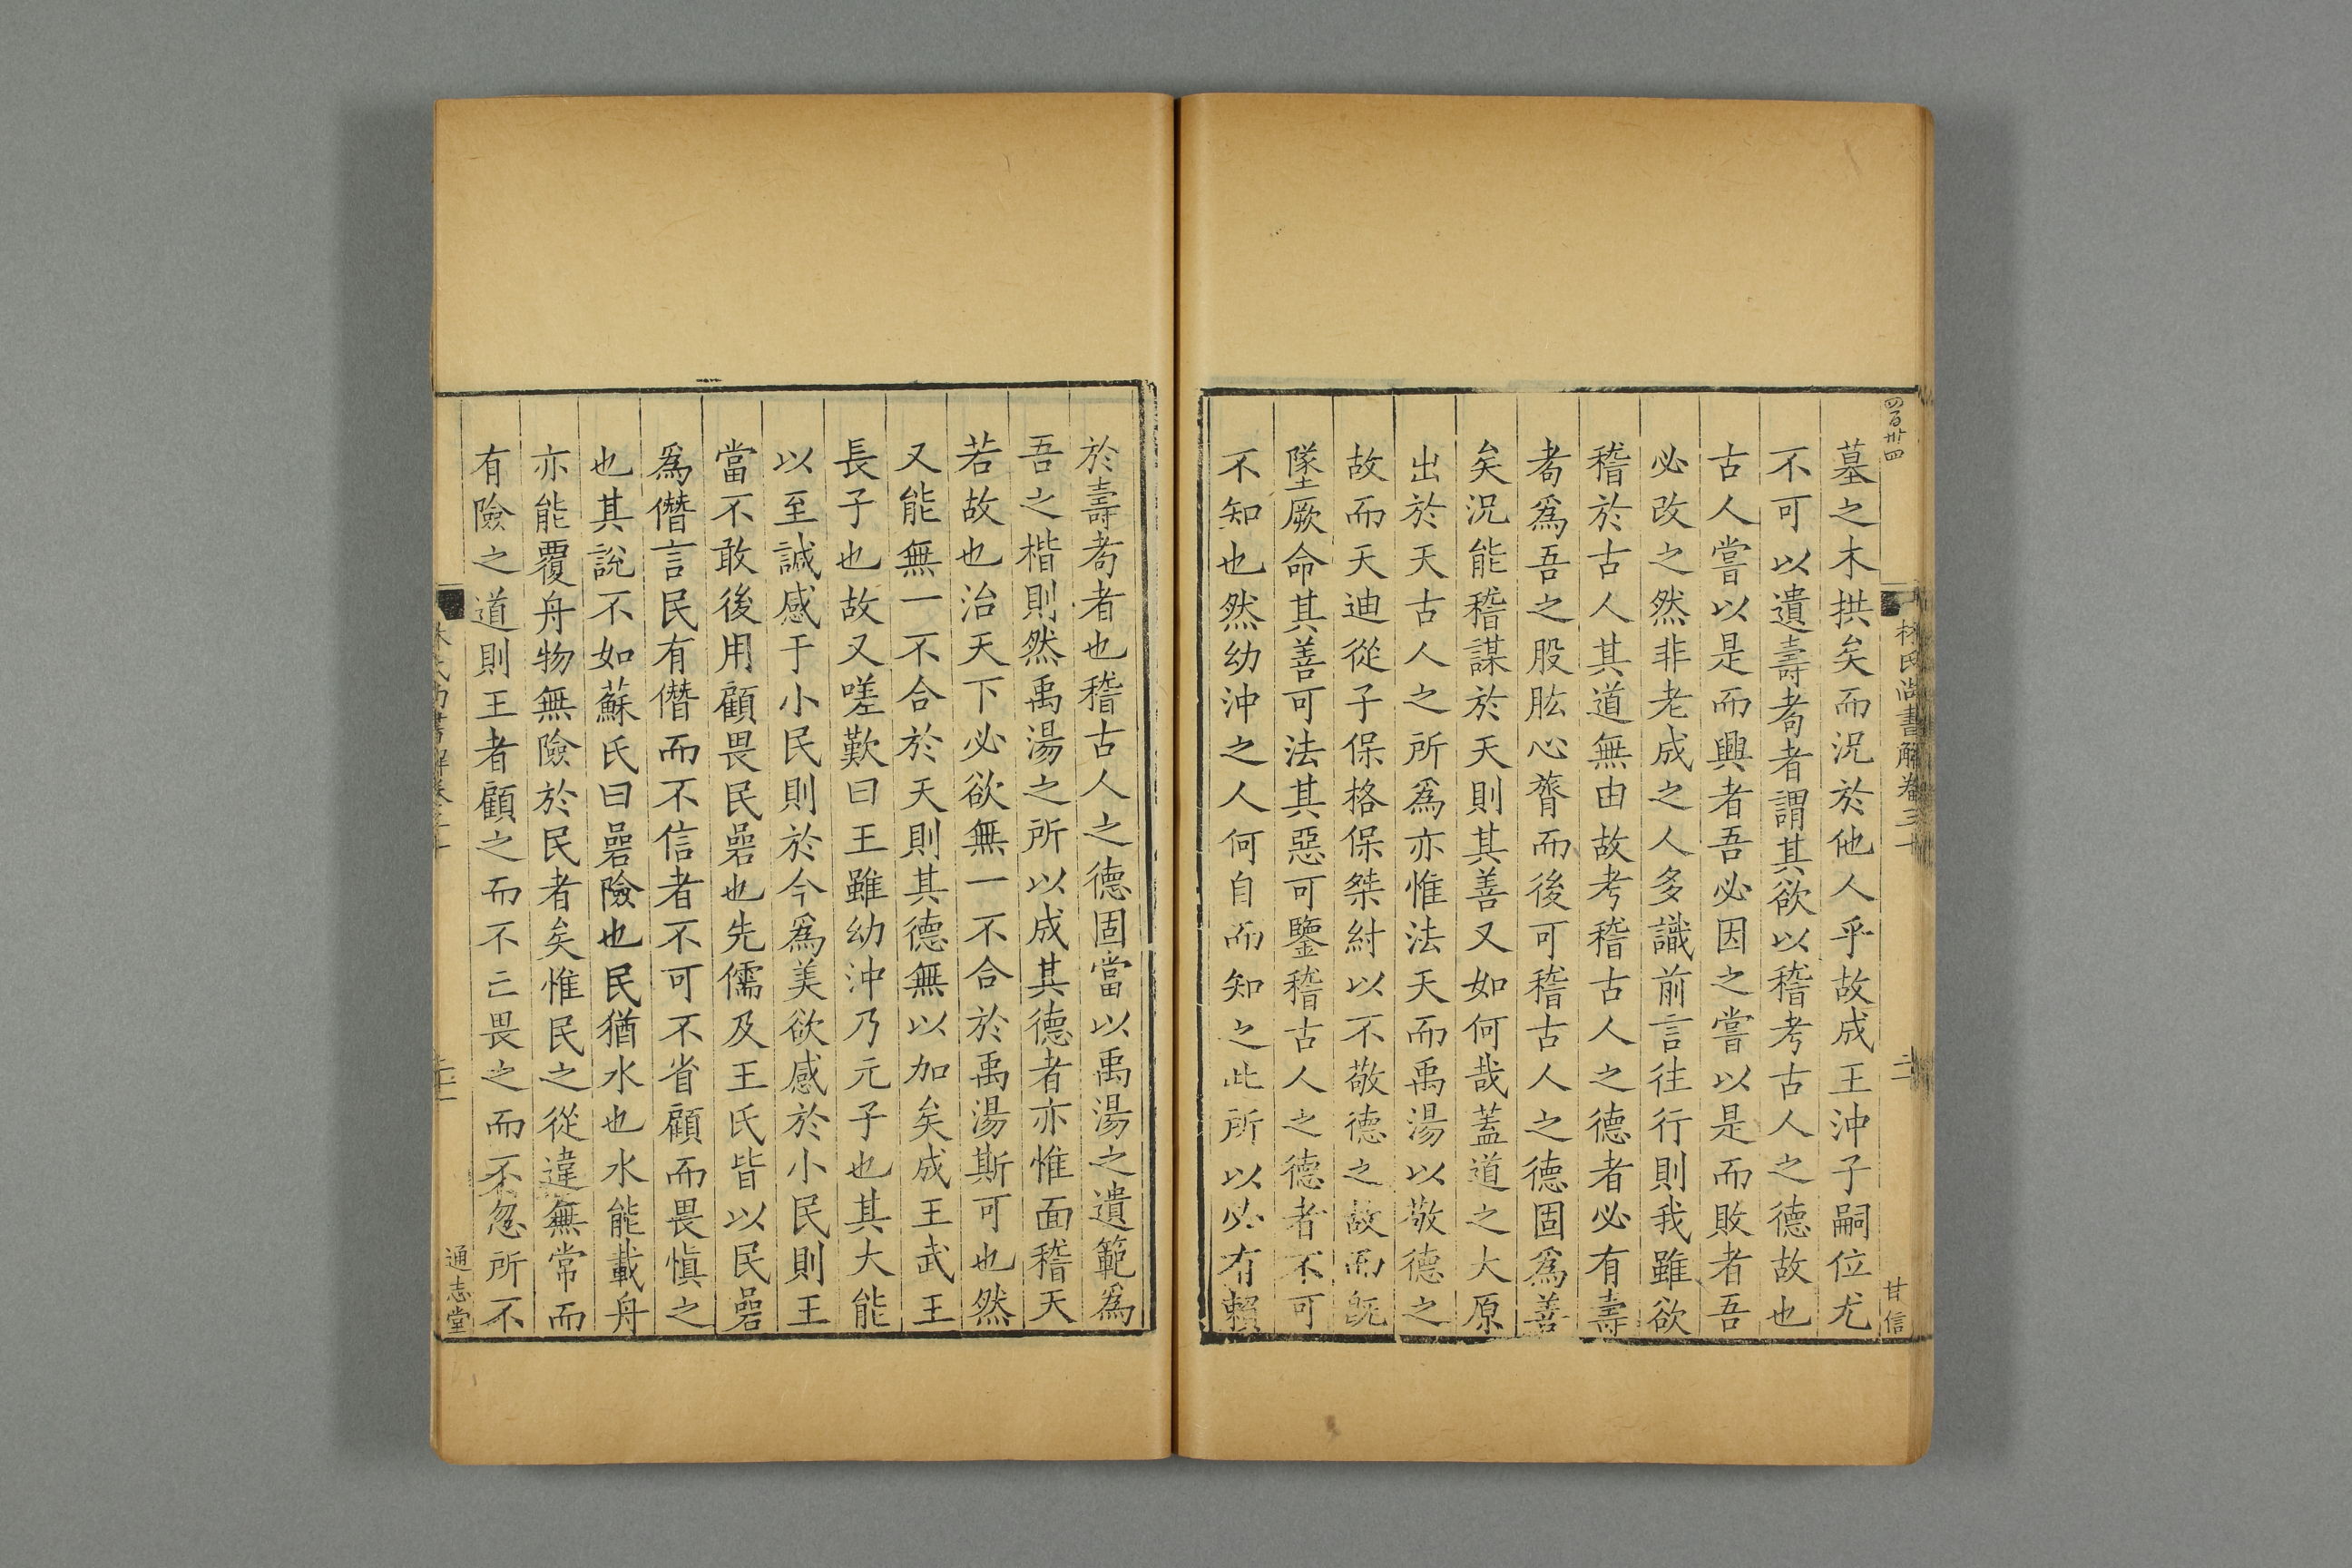 四百卅四
林氏尚書解卷三十
二十
甘信
墓之木拱矣而況於他人乎故成王沖子嗣位尤
不可以遺壽耇者謂其欲以稽考古人之德故也
古人嘗以是而興者吾必因之嘗以是而敗者吾
必改之然非老成之人多識前言往行則我雖欲
稽於古人其道無由故考稽古人之德者必有壽
耇爲吾之股肱心膂而後可稽古人之德固爲善
矣況能稽謀於天則其善又如何哉蓋道之大原
出於天古人之所爲亦惟法天而禹湯以敬德之
故而天迪從子保格保桀紂以不敬德之故而旣
墜厥命其善可法其惡可鑒稽古人之德者不可
不知也然幼沖之人何自而知之此所以必有賴
於壽耇者也稽古人之德固當以禹湯之遺範爲
吾之楷則然禹湯之所以成其德者亦惟面稽天
若故也治天下必欲無一不合於禹湯斯可也然
又能無一不合於天則其德無以加矣成王武王
長子也故又嗟歎曰王雖幼沖乃元子也其大能
以至誠感于小民則於今爲美欲感於小民則王
當不敢後用顧畏民碞也先儒及王氏皆以民碞
爲僭言民有僭而不信者不可不省顧而畏愼之
也其說不如蘇氏曰碞險也民猶水也水能載舟
亦能覆舟物無險於民者矣惟民之從違無常而
有險之道則王者顧之而不亡畏之而不忽所不
通志堂